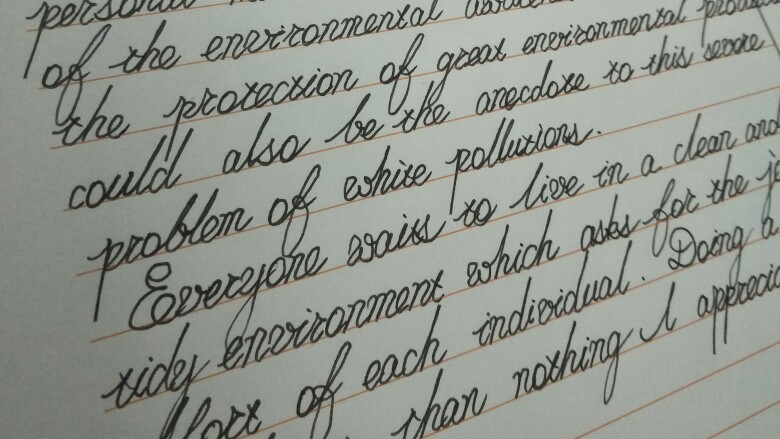 of the environmental
the protection of great environmental
could also be the anecdote to this severe
problem of white pollutions.
Everyone waits to live in a clean and
tidy environment which asks for the
of each individual. Doing a
than nothing I